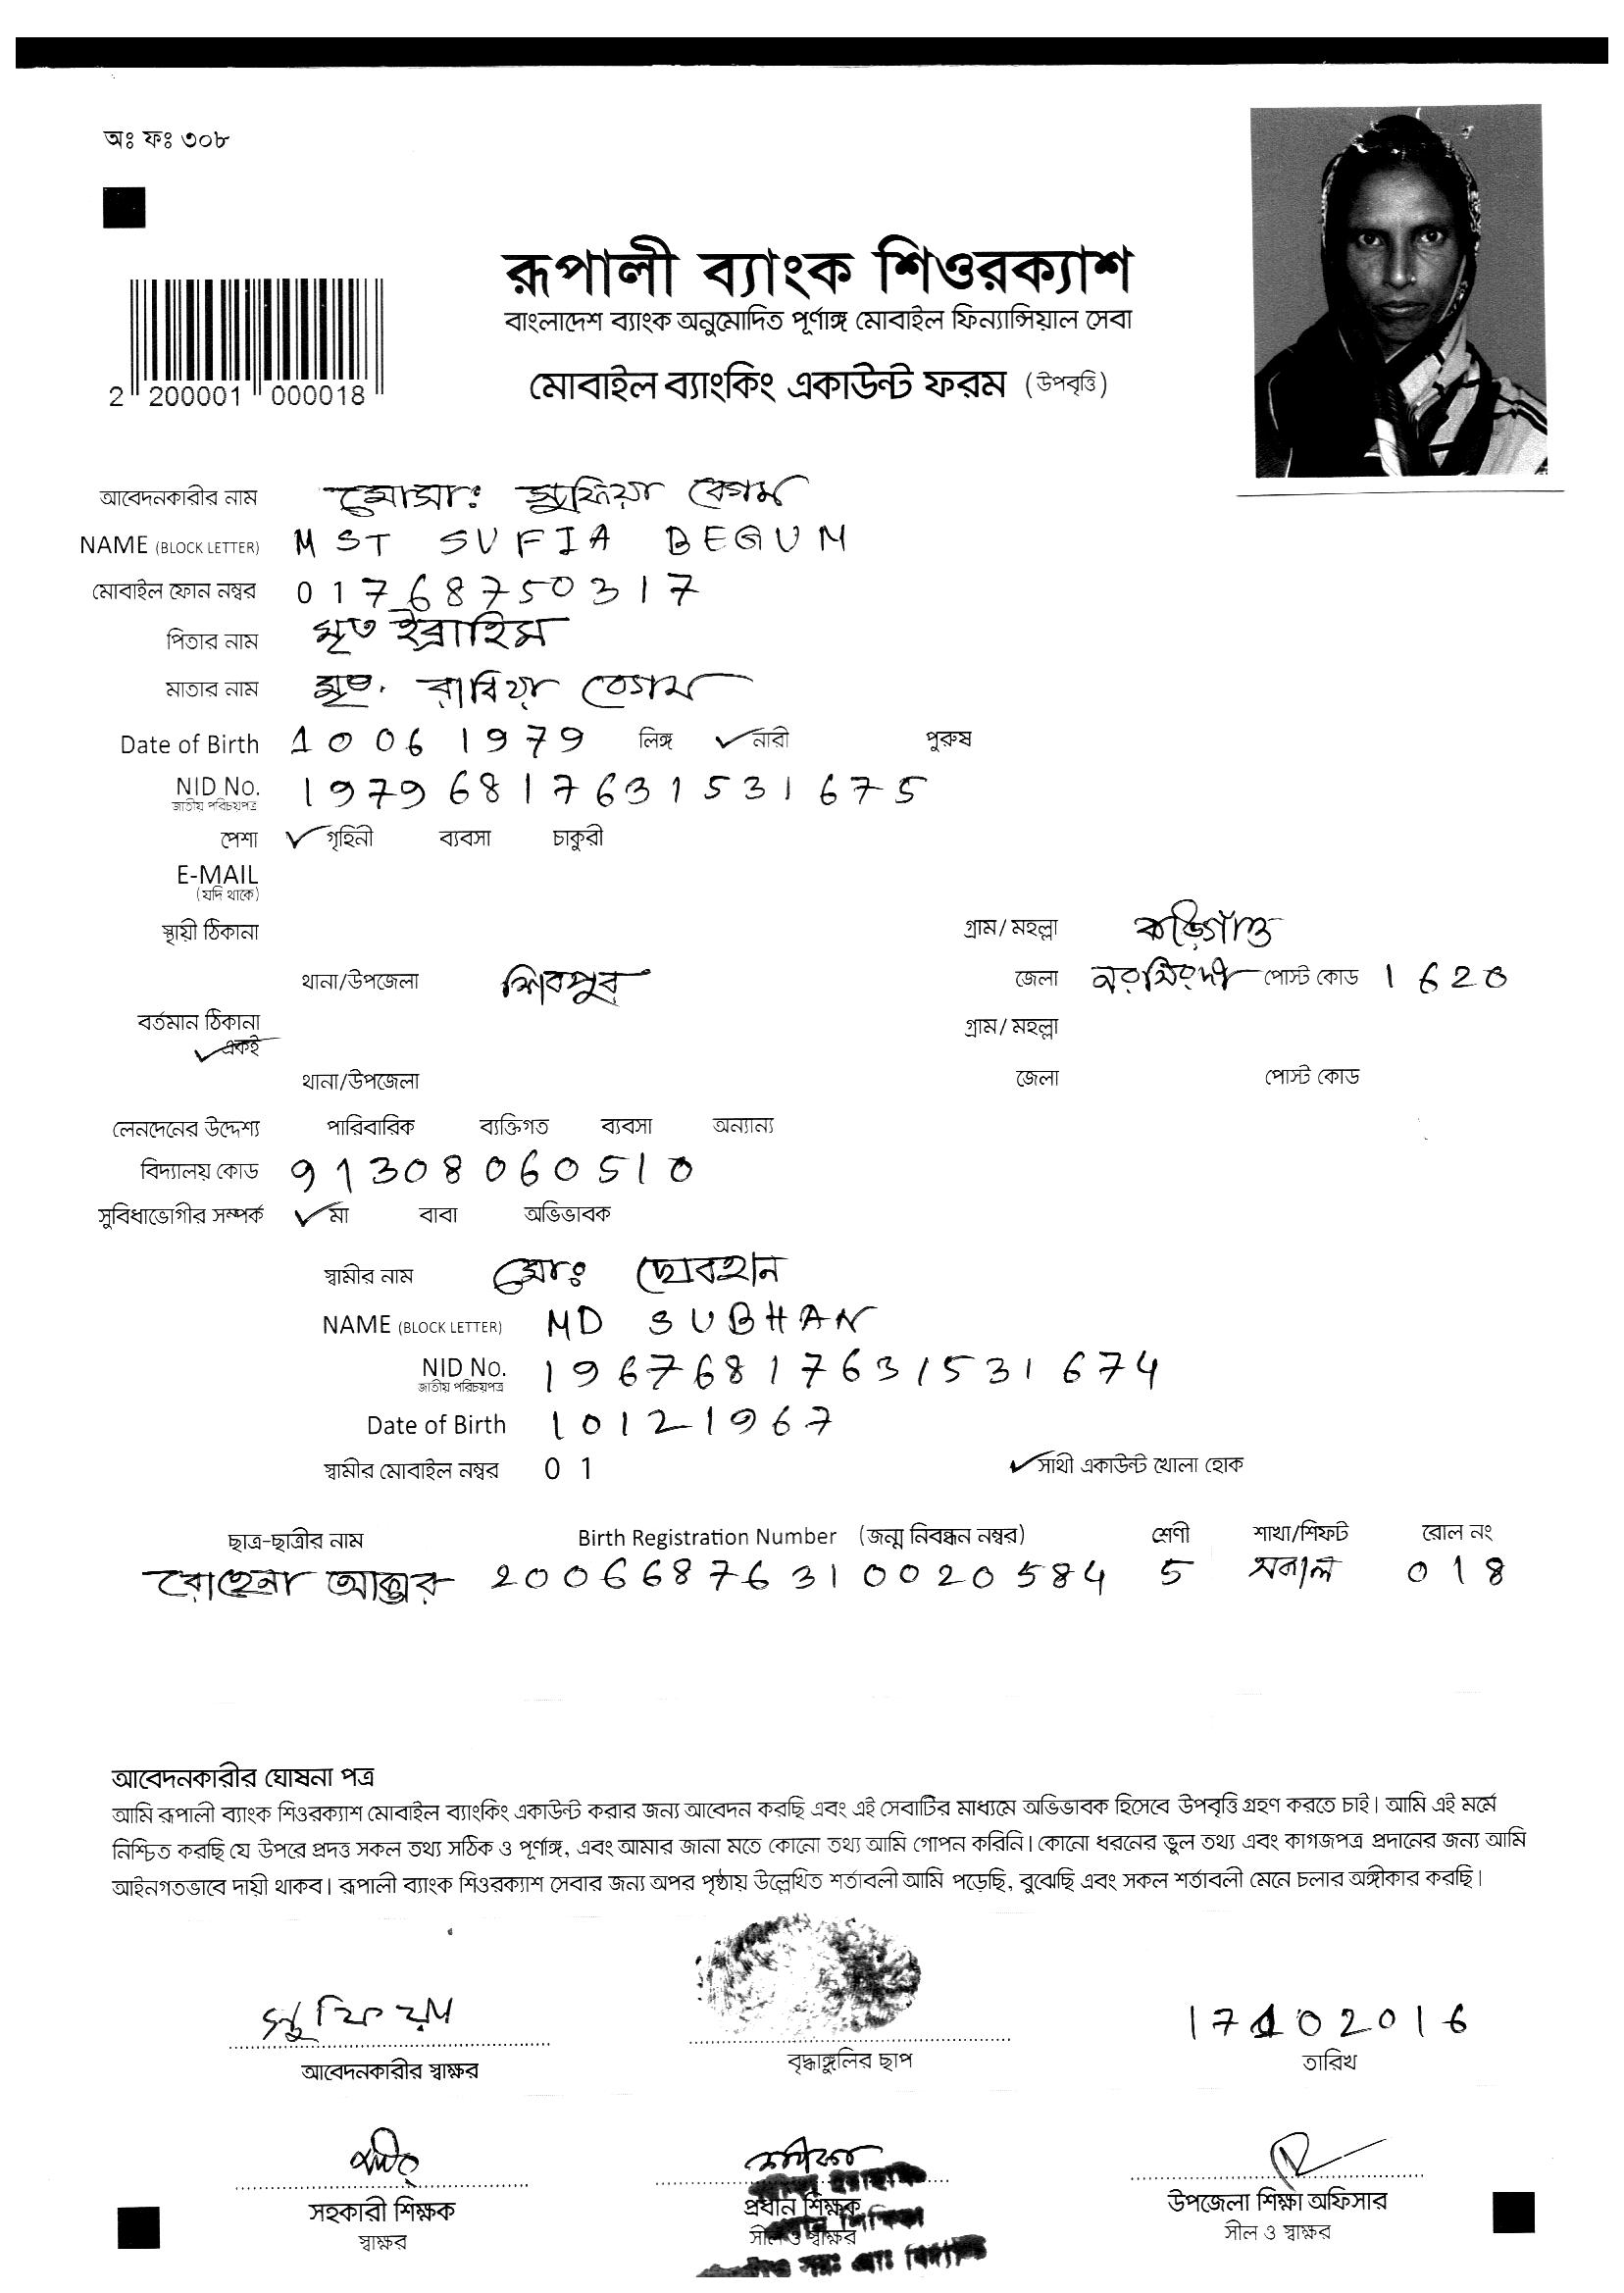 অঃ ফঃ ৩০৮
রূপালী ব্যাংক শিওরক্যাশ
বাংলাদেশ ব্যাংক অনুমোদিত পূর্ণাঙ্গ মোবাইল ফিন্যান্সিয়াল সেবা
মোবাইল ব্যাংকিং একাউন্ট ফরম (উপবৃত্তি)
2 200001 000018
আবেদনকারীর নাম মোসাঃ সুফিয়া বেগম
NAME (BLOCK LETTER) MST SUFIA BEGUM
মোবাইল ফোন নম্বর 01768750317
পিতার নাম মৃত ইব্রাহিম
মাতার নাম মৃত. রাবিয়া বেগম
Date of Birth 10061979 লিঙ্গ ✓ নারী পুরুষ
NID No. 19796817631531675
জাতীয় পরিচয়পত্র
পেশা ✓ গৃহিনী ব্যবসা চাকুরী
E-MAIL
(যদি থাকে)
স্থায়ী ঠিকানা গ্রাম/ মহল্লা
থানা/উপজেলা শিবপুর জেলা নরসিংদী পোস্ট কোড 1620
বর্তমান ঠিকানা গ্রাম/ মহল্লা
✓ একই
থানা/উপজেলা জেলা পোস্ট কোড
লেনদেনের উদ্দেশ্য পারিবারিক ব্যক্তিগত ব্যবসা অন্যান্য
বিদ্যালয় কোড 91308060510
সুবিধাভোগীর সম্পর্ক ✓ মা বাবা অভিভাবক
স্বামীর নাম মোঃ ছোবহান
NAME (BLOCK LETTER) MD SUBHAN
NID No. 19676817631531674
জাতীয় পরিচয়পত্র
Date of Birth 10121967
স্বামীর মোবাইল নম্বর 01 ✓ সাথী একাউন্ট খোলা হোক
ছাত্র-ছাত্রীর নাম Birth Registration Number (জন্ম নিবন্ধন নম্বর) শ্রেণী শাখা/শিফট রোল নং
রোহেনা আক্তার 20066876310020584 5 সকাল 018
আবেদনকারীর ঘোষনা পত্র
আমি রূপালী ব্যাংক শিওরক্যাশ মোবাইল ব্যাংকিং একাউন্ট করার জন্য আবেদন করছি এবং এই সেবাটির মাধ্যমে অভিভাবক হিসেবে উপবৃত্তি গ্রহণ করতে চাই। আমি এই মর্মে
নিশ্চিত করছি যে উপরে প্রদত্ত সকল তথ্য সঠিক ও পূর্ণাঙ্গ, এবং আমার জানা মতে কোনো তথ্য আমি গোপন করিনি। কোনো ধরনের ভুল তথ্য এবং কাগজপত্র প্রদানের জন্য আমি
আইনগতভাবে দায়ী থাকব। রূপালী ব্যাংক শিওরক্যাশ সেবার জন্য অপর পৃষ্ঠায় উল্লেখিত শর্তাবলী আমি পড়েছি, বুঝেছি এবং সকল শর্তাবলী মেনে চলার অঙ্গীকার করছি।
সুফিয়া 17102016
আবেদনকারীর স্বাক্ষর বৃদ্ধাঙ্গুলির ছাপ তারিখ
সহকারী শিক্ষক প্রধান শিক্ষক উপজেলা শিক্ষা অফিসার
স্বাক্ষর সীল ও স্বাক্ষর সীল ও স্বাক্ষর